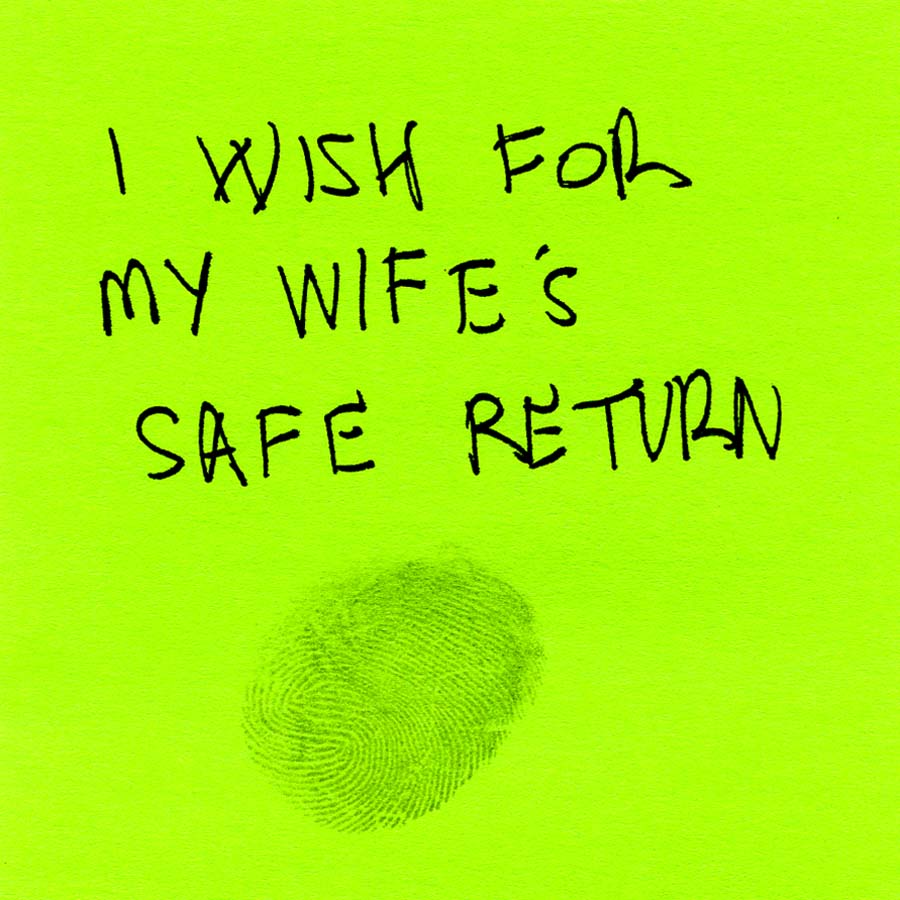 I WISH FOR
MY WIFE'S
SAFE RETURN